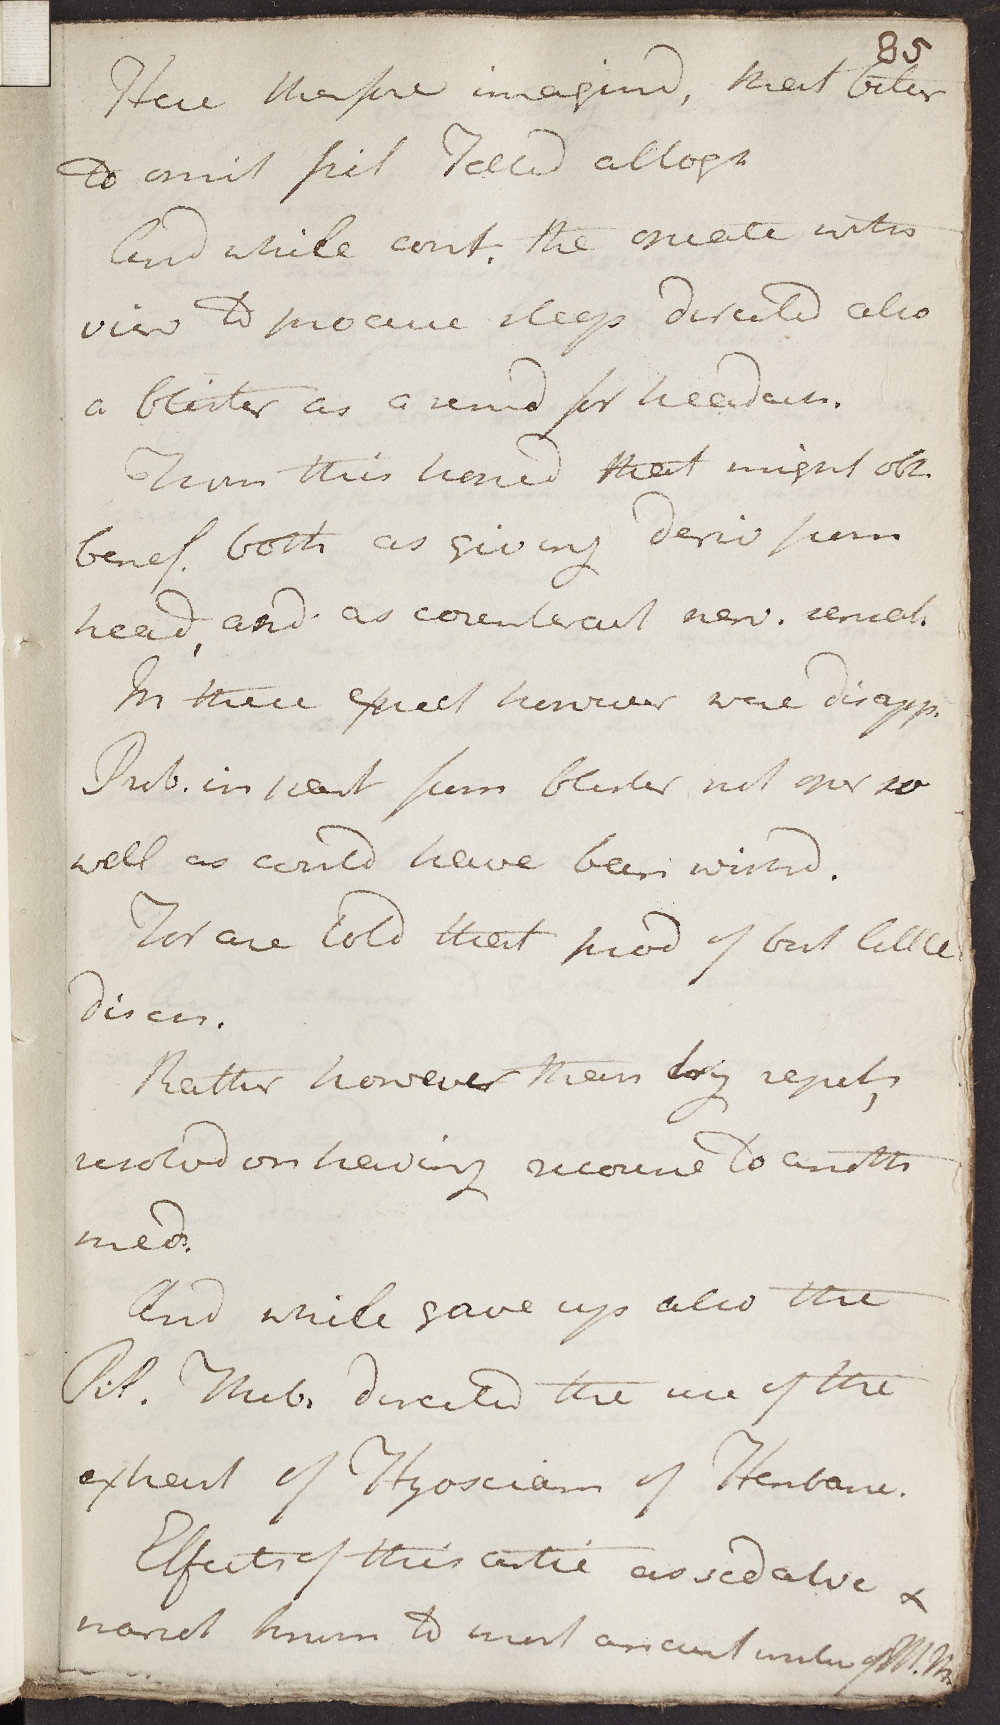 85
Here therfore imagind, that better
to omit pil altogr
And while cont. the opiate with
view to procure sleep directed also
a blister as a remd for headach.
From this hoped that might obt.
benef. both as giving deriv from
head, and as counteract nerv.
In these expect however were disapp.
Prob. in part from blister not oper so
well as could have been wishd.
For are told that prod of but little
disch.
Rather however than try repet,
resolvd on having recourse to anoth
med.
And while gave up also the
Pil. Theb. directed the use of the
extract of Hyosciam or Henbane.
Effects of this artic as sedative &
narcot known to most ancient writer of M. M.